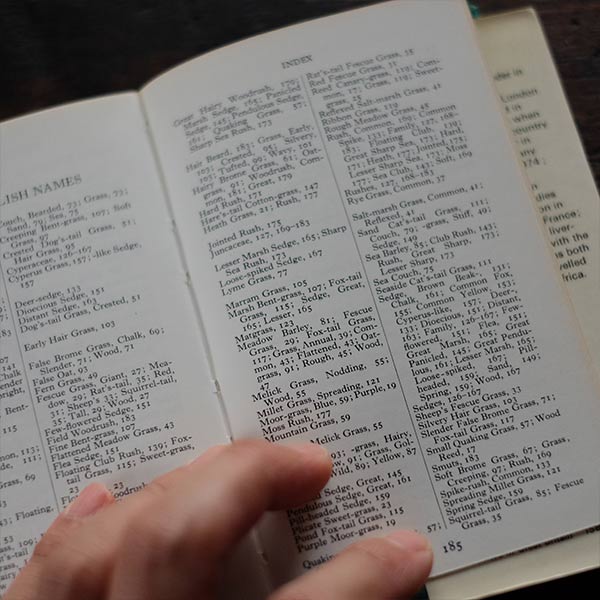 LISH NAMES
Couch, Bearded, 73; Grass, 73;
Sand, 79; Sea, 75
Creeping Bent-grass, 107; Soft
Grass, 97
Crested Dog's-tail Grass, 51;
Hair Grass, 95
Cyperaceae, 126-167
Cyperus Grass, 157; -like Sedge,
157
Deer-sedge, 133
Dioecious Sedge, 151
Distant Sedge, 163
Dog's-tail Grass, Crested, 51
Early Hair Grass, 103
False Brome Grass, Chalk, 69;
Slender, 71; Wood, 71
False Oat, 93
Fen Grass, 49
Fescue Grass, Giant, 27; Mea-
dow, 29; Rat's-tail, 35; Red,
31; Sheep's 33; Squirrel-tail,
35; Tall, 29; Wood, 27
Few-flowered Sedge, 151
Field Woodrush, 183
Fine Bent-grass, 107
Flattened Meadow Grass, 43
Flea Sedge, 151
Floating Club Rush, 139; Fox-
tail Grass, 115; Sweet-grass,
INDEX
Great Hairy Woodrush, 179;
Marsh Sedge, 165; Panicled
Sedge, 145; Pendulous Sedge,
161; Quaking Grass, 57;
Sharp Sea Rush, 173
Hair Beard, 183; Grass, Early,
103; Crested, 95; Silvery,
103; Tufted, 99; Wavy, 101
Hairy Brome Grass, 61; Oat-
grass, 91; Woodrush, Com-
mon, 181; Great, 179
Hard Rush, 171
Hare's-tail Cotton-grass, 147
Heath Grass, 21; Rush, 177
Jointed Rush, 175
Juncaceae, 127, 169-183
Lesser Marsh Sedge, 165; Sharp
Sea Rush, 173
Loose-spiked Sedge, 167
Lyme Grass, 77
Marram Grass, 105
Marsh Bent-grass, 107; Fox-tail
Grass, 115; Sedge, Great,
165; Lesser, 165
Matgrass, 123
Meadow Barley, 81; Fescue
Grass, 29; Fox-tail Grass,
117; Grass, Annual, 39; Com-
mon, 43; Flattened, 43; Oat-
grass, 91; Rough, 45; Wood,
47
Melick Grass, Nodding, 55;
Wood, 55
Millet Grass, Spreading, 121
Moor-grass, Blue, 59; Purple, 19
Moss Rush, 177
Mountain Grass, 59
Melick Grass, 55
93; -grass, Hairy,
89; Yellow, 87
Sedge, Great, 145
Pendulous Sedge, 161
Pill-headed Sedge, 159
Plicate Sweet-grass, 23
Pond Fox-tail Grass, 115
Purple Moor-grass, 19
57;
Rat's-tail Fescue Grass, 35
Red Fescue Grass, 31
Reed Canary-grass, 119; Com-
mon, 17; Grass, 119; Sweet-
grass, 25
Reflexed Salt-marsh Grass, 41
Ribbon Grass, 119
Rough Meadow Grass, 45
Rush, Common, 169; Common
Spike, 133; Family, 127, 168-
183; Floating Club, 139;
Great Sharp Sea, 173; Hard,
171; Heath, 177; Jointed, 175;
Lesser Sharp Sea, 173; Moss,
177; Sharp Sea, 173; Soft, 169
Rushes, 127, 168-183
Rye Grass, Common, 37
Salt-marsh Grass, Common, 41;
Reflexed, 41
Sand Cat's-tail Grass, 111;
Couch, 79; -grass, Stuff, 49;
Sedge, 143
Sea Barley, 85; Club Rush, 143;
Rush, Great Sharp, 173;
Lesser Sharp, 173
Sea Couch, 75
Seaside Cat's-tail Grass, 111
Sedge, Brown Oak, 131;
Chalk, 161; Common, 155;
Common Yellow, 153;
Cyperus-like, 157; Deer-,
133; Dioecious, 151; Distant,
163; Family, 126-167; Few-
flowered, 151; Flea, 151;
Great Marsh, 165; Great
Panicled, 145; Great Pendu-
lous, 161; Lesser Marsh, 165;
Loose-spiked, 167; Pill-
headed, 159; Sand, 149;
Spring, 159; Wood, 167
Sedges, 126-167
Sheep's Fescue Grass, 33
Silvery Hair Grass, 103
Slender False Brome Grass, 71;
Fox-tail Grass, 117
Small Quaking Grass, 57; Wood
Reed, 17
Smuts, 18
Soft Brome Grass, 67; Grass,
Creeping, 97; Rush, 169
Spike-rush, Common, 133
Spreading Millet Grass, 121
Spring Sedge, 159
Squirrel-tail Grass, 85; Fescue
Grass, 35
185